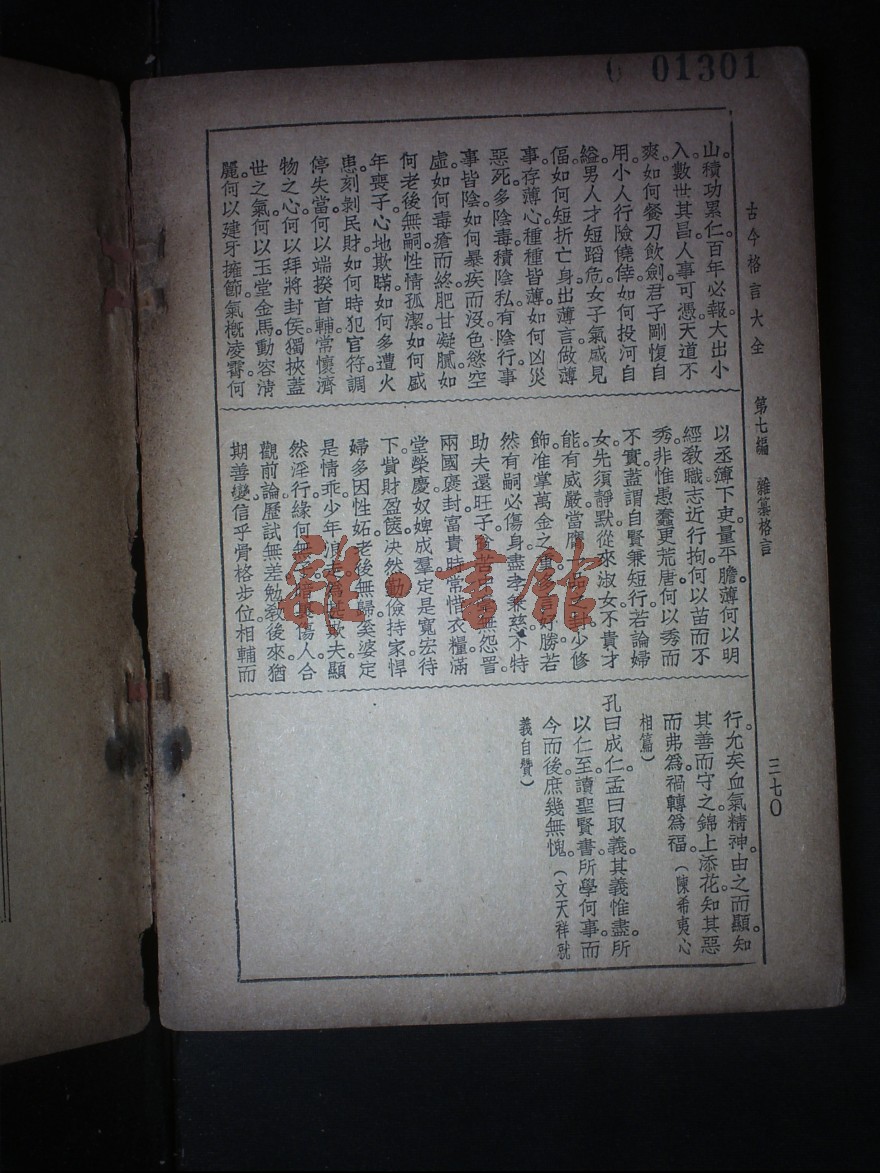 01301
古今格言大全　第七編　雜纂格言　三七〇
山。積功累仁。百年必報。大出小
入。數世其昌。人事可憑。天道不
爽。如何餐刀飲劍。君子剛愎自
用。小人行險僥倖。如何投河自
縊。男人才短蹈危。女子氣盛見
偪。如何短折亡身。出薄言。做薄
事。存薄心。種種皆薄。如何凶災
惡死。多陰毒。積陰私。有陰行。事
事皆陰。如何暴疾而沒。色慾空
虛。如何毒瘡而終。肥甘凝膩。如
何老後無嗣。性情孤潔。如何盛
年喪子。心地欺瞞。如何多遭火
患。刻剝民財。如何時犯官符。調
停失當。何以端揆首輔。常懷濟
物之心。何以拜將封侯。獨挾蓋
世之氣。何以玉堂金馬。動容清
麗。何以建牙擁節。氣概凌霄。何
以丞簿下吏。量平膽薄。何以明
經教職。志近行拘。何以苗而不
秀。非惟愚蠢更荒唐。何以秀而
不實。蓋謂自賢兼短行。若論婦
女。先須靜默。從來淑女。不貴才
能。有威嚴當膺一品之封。少修
飾准掌萬金之重。多言好勝。若
然有嗣必傷身。盡孝兼慈。不特
助夫還旺子。貧苦中毫無怨詈。
兩國褒封。富貴時常惜衣糧。滿
堂榮慶。奴婢成羣。定是寬宏待
下。貲財盈篋。決然勤儉持家。悍
婦多因性妬。老後無歸。奚婆定
是情乖。少年浪走。為甚欺夫。顯
然淫行。緣何無子。暗裏傷人。合
觀前論。歷試無差。勉敎後來。猶
期善變。信乎骨格步位。相輔而
行。允矣血氣精神。由之而顯。知
其善而守之。錦上添花。知其惡
而弗為。禍轉為福。（陳希夷心
相篇）
孔曰成仁。孟曰取義。其義惟盡。所
以仁至。讀聖賢書。所學何事。而
今而後。庶幾無愧。（文天祥就
義自贊）
雜·書館